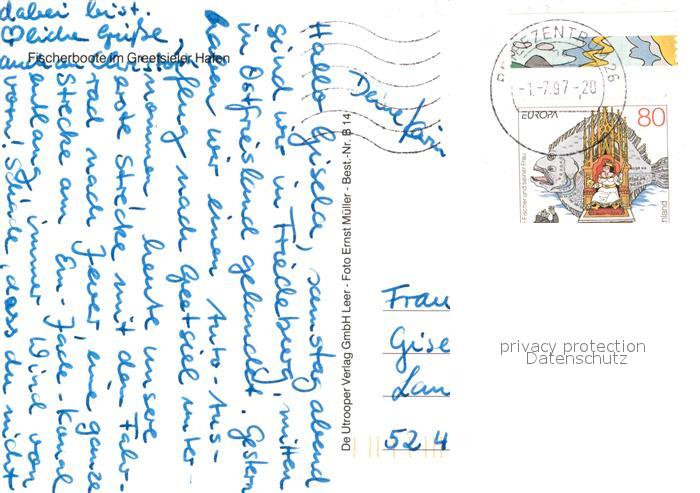 Fischerboote im Greetsieler Hafen
Hallo Gisela, samstag abend
sind wir in Friedeburg, mitten
in Ostfriesland gelandet. Gestern
haben wir einen Auto-Aus-
flug nach Greetsiel unter-
nommen, heute unsere
erste Strecke mit dem Fahr-
rad nach Jever eine ganze
Strecke am Em-Jade-Kanal
entlang, immer Wind von
vorn! Schade, dass du nicht
dabei bist.
Liebe Grüße,
Deine Karin
De Utrooper Verlag GmbH Leer - Foto Ernst Müller - Best.-Nr. B 14
BRIEFZENTRUM 26
-1.-7.97.-20
EUROPA
80
Fischer und seiner Frau
hland
Frau
Gise
Lan
524
privacy protection
Datenschutz